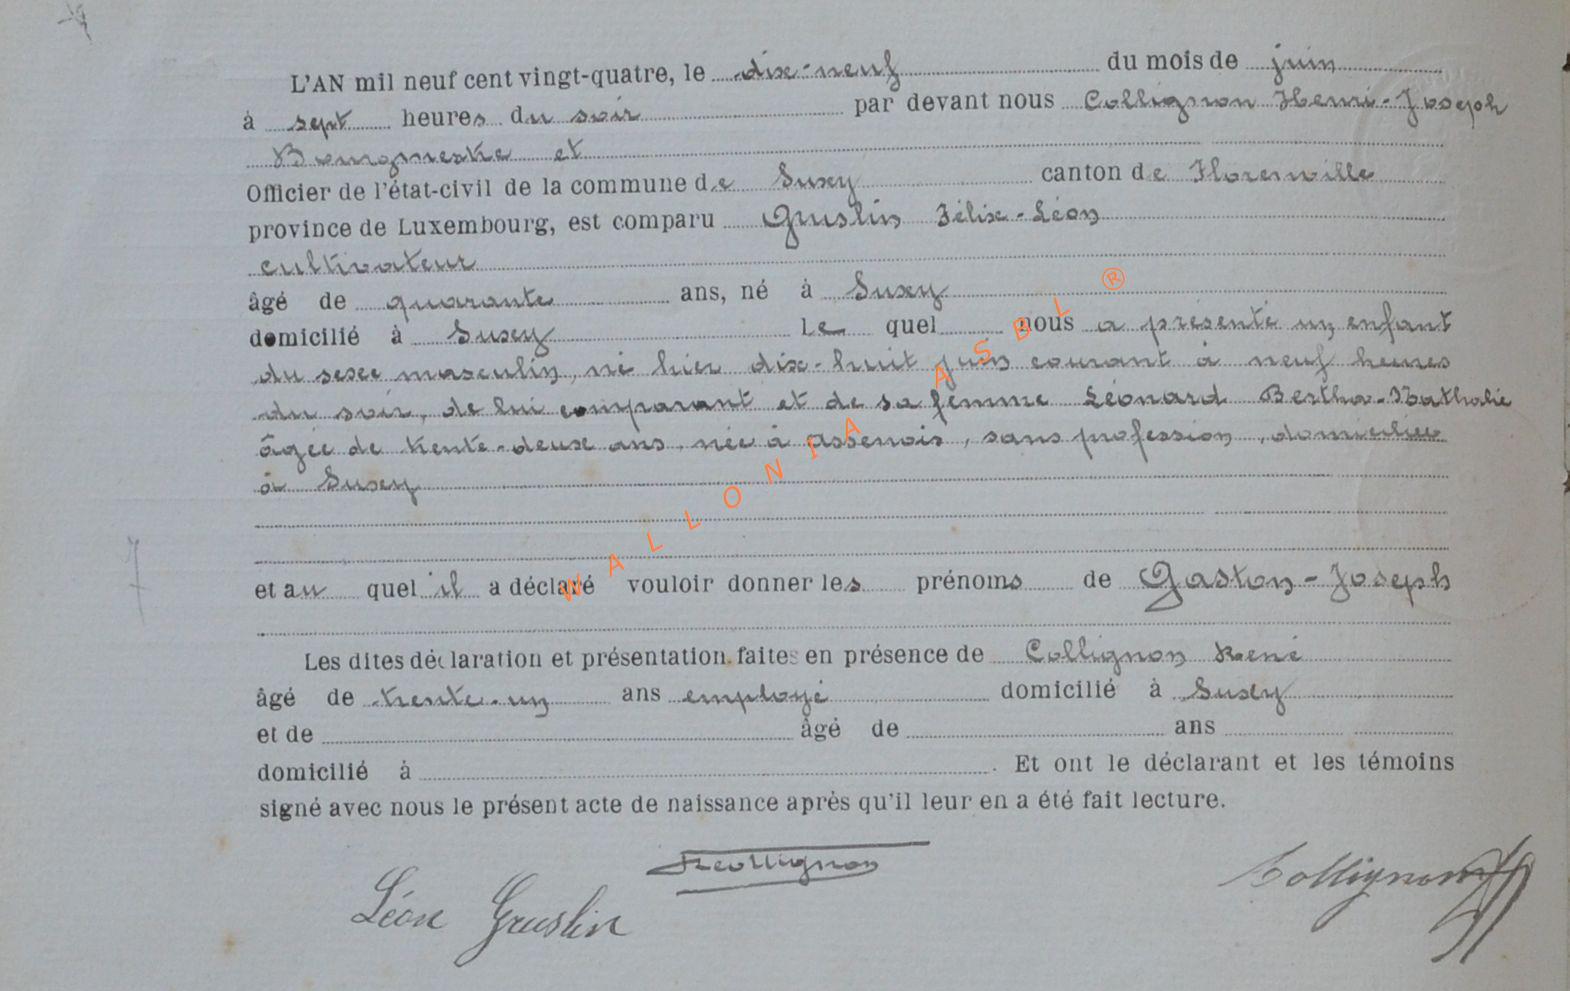 L'AN mil neuf cent vingt-quatre, le dix-neuf du mois de juin
à sept heures du soir par devant nous Collignon Henri-Joseph
Bourgmestre et
Officier de l'état-civil de la commune de Suxy canton de Florenville
province de Luxembourg, est comparu Gruslin Félix-Léon
cultivateur
âgé de quarante ans, né à Suxy
domicilié à Suxy Le quel nous a présenté un enfant
du sexe masculin, né hier dix-huit juin courant à neuf heures
du soir, de lui comparant et de sa femme Léonard Bertha-Nathalie
âgée de trente-deux ans, née à Assenois, sans profession, domiciliée
à Suxy
et au quel il a déclaré vouloir donner les prénoms de Gaston-Joseph
Les dites déclaration et présentation faites en présence de Collignon René
âgé de trente-un ans employé domicilié à Suxy
et de âgé de ans
domicilié à . Et ont le déclarant et les témoins
signé avec nous le présent acte de naissance après qu'il leur en a été fait lecture.
RCollignon
Collignon
Léon Gruslin
7
WALLONIA ASBL ®